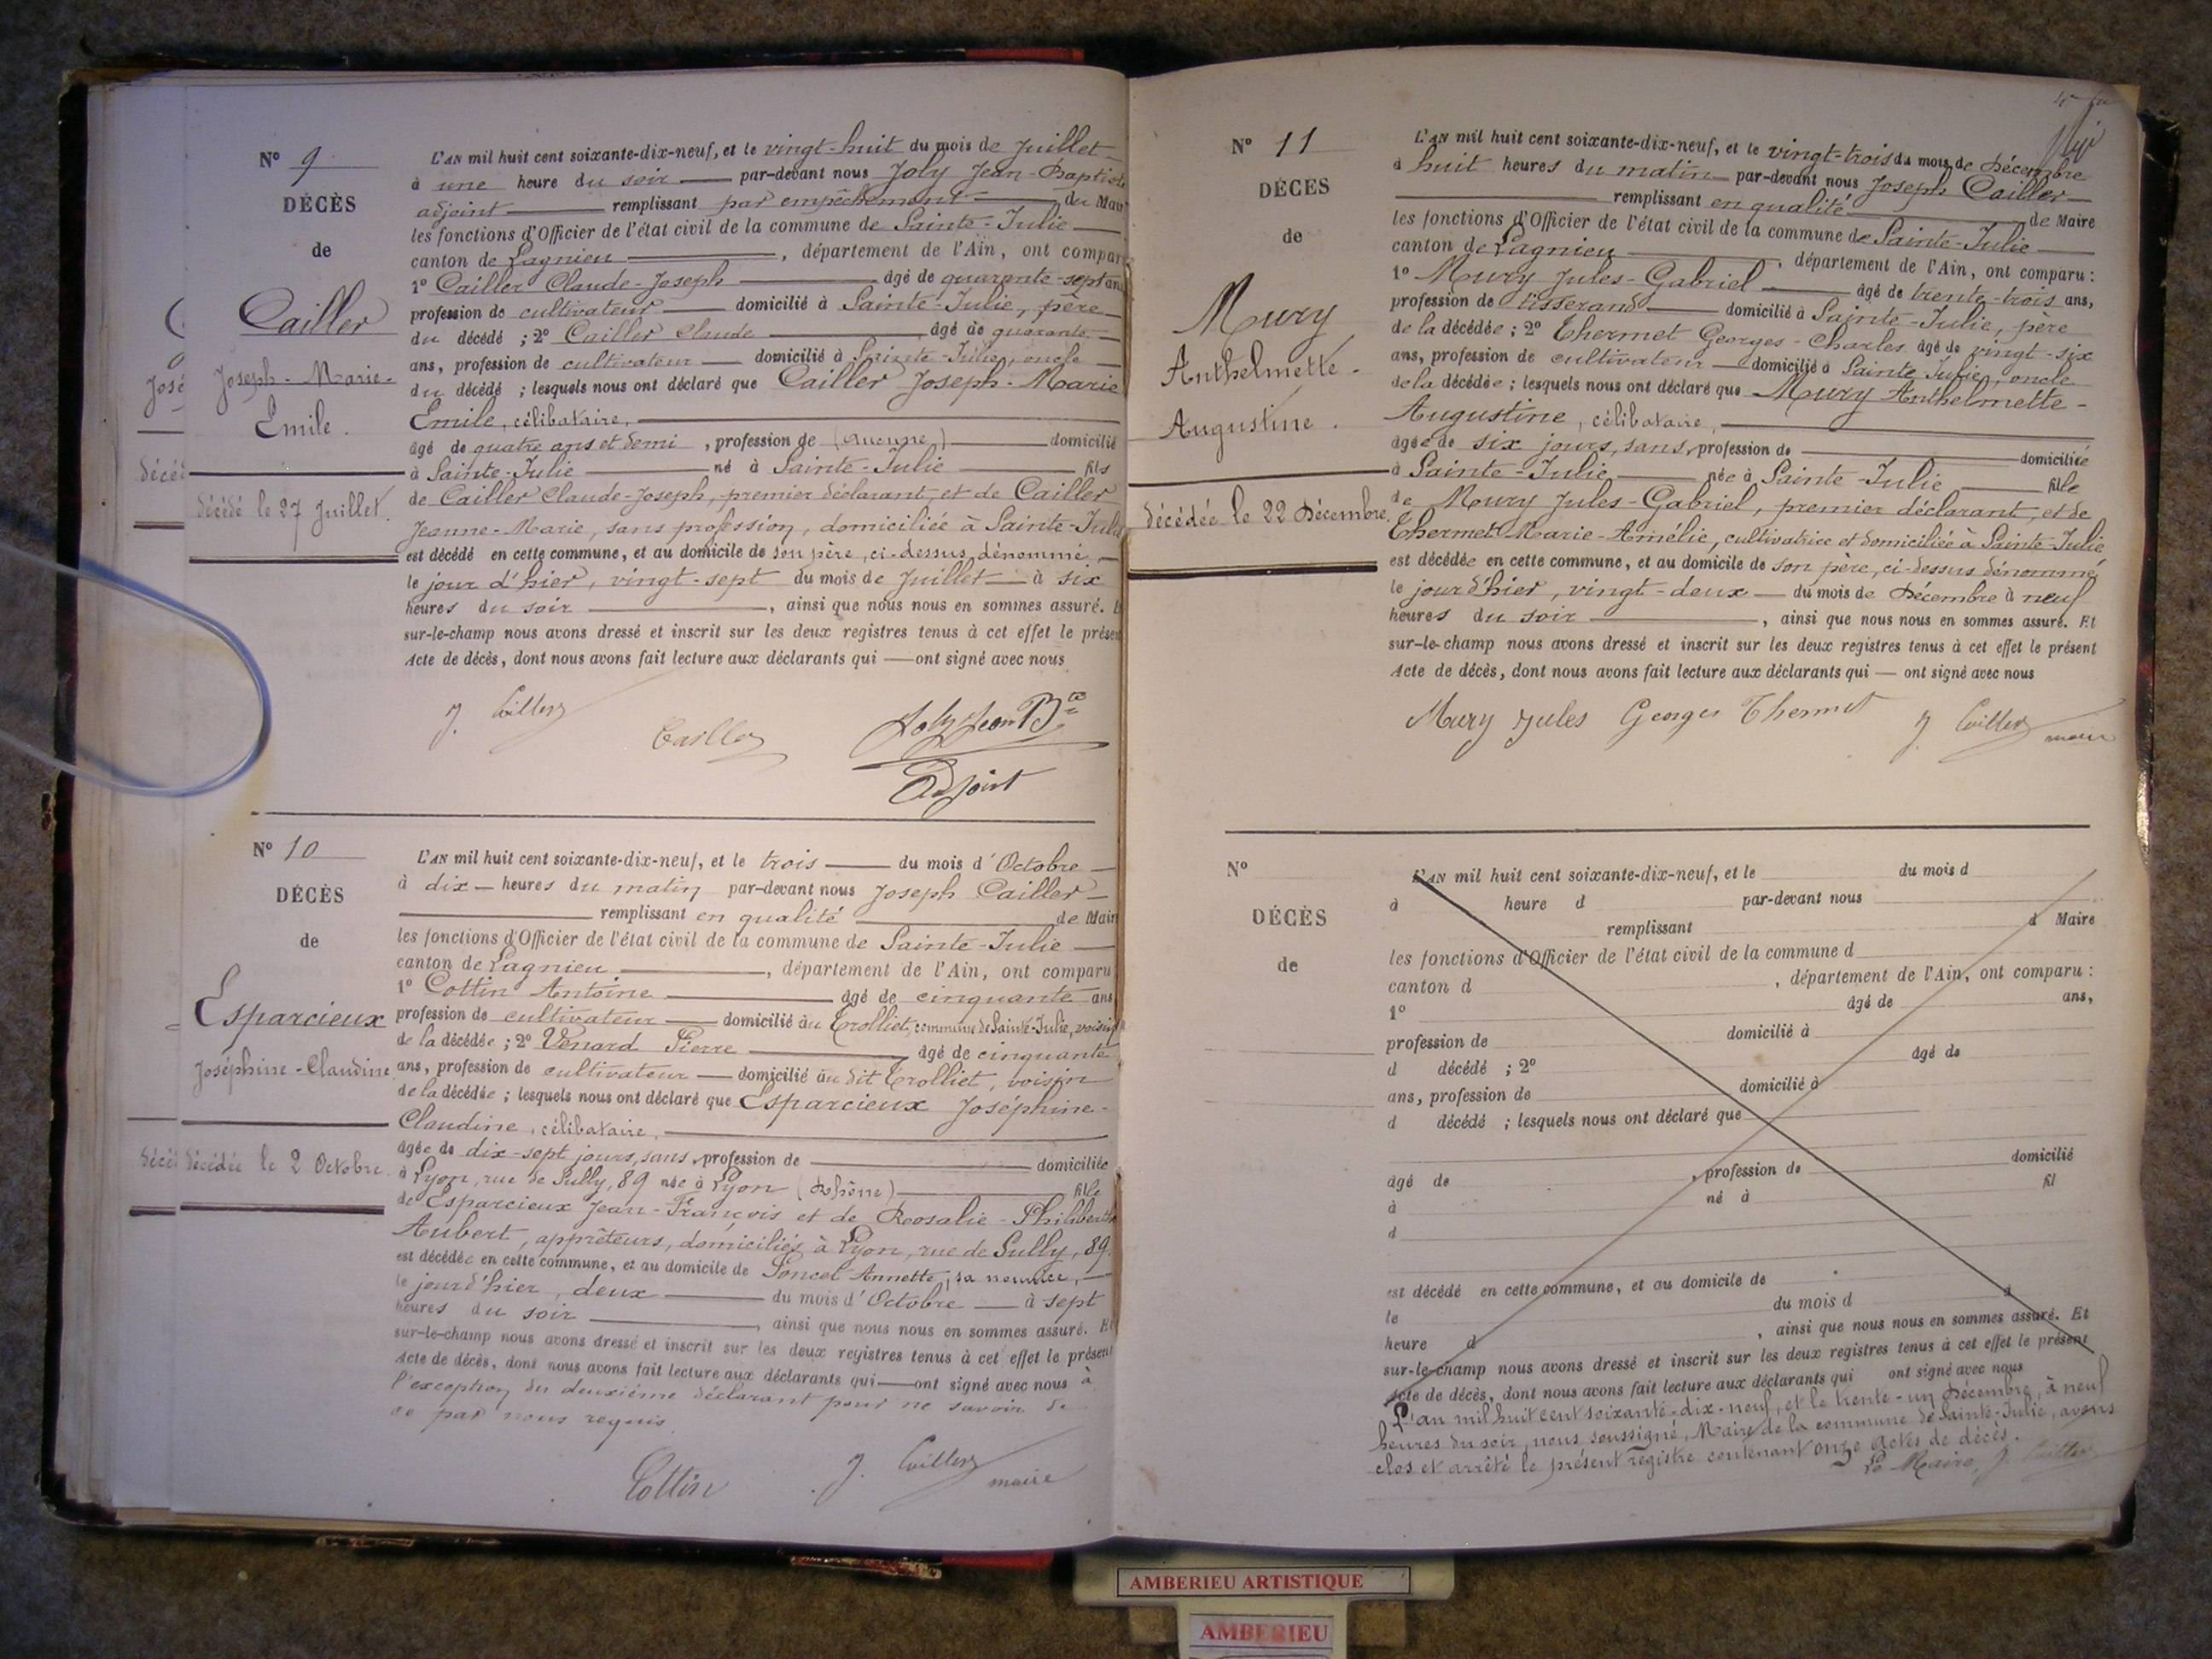 Nº 9
DÉCÈS
de
Cailler
Joseph-Marie-
Emile.
décédé le 27 Juillet.
L'AN mil huit cent soixante-dix-neuf, et le vingt-huit du mois de Juillet
à une heure du soir par-devant nous Joly Jean-Baptiste
adjoint remplissant par empêchement du Maire
les fonctions d'Officier de l'état civil de la commune de Sainte-Julie
canton de Lagnieu, département de l'Ain, ont compar
1º Cailler Claude-Joseph âgé de quarante-sept ans
profession de cultivateur domicilié à Sainte-Julie, père
du décédé ; 2º Cailler Claude âgé de quarante
ans, profession de cultivateur domicilié à Sainte-Julie, oncle
du décédé ; lesquels nous ont déclaré que Cailler Joseph-Marie
Emile, célibataire,
âgé de quatre ans et demi, profession de (aucune) domicilié
à Sainte-Julie né à Sainte-Julie fils
de Cailler Claude-Joseph, premier déclarant, et de Cailler
Jeanne-Marie, sans profession, domiciliée à Sainte-Julie
est décédé en cette commune, et au domicile de son père, ci-dessus dénommé
le jour d'hier, vingt-sept du mois de Juillet à six
heures du soir, ainsi que nous nous en sommes assuré. E
sur-le-champ nous avons dressé et inscrit sur les deux registres tenus à cet effet le présen
Acte de décès, dont nous avons fait lecture aux déclarants qui ont signé avec nous
J. Cailler
Cailler
Joly Jean Bte
Adjoint
Nº 10
DÉCÈS
de
Esparcieux
Joséphine-Claudine
décédée le 2 Octobre
L'AN mil huit cent soixante-dix-neuf, et le trois du mois d'Octobre
à dix heures du matin par-devant nous Joseph Cailler
remplissant en qualité de Mair
les fonctions d'Officier de l'état civil de la commune de Sainte-Julie
canton de Lagnieu, département de l'Ain, ont comparu
1º Cottin Antoine âgé de cinquante ans
profession de cultivateur domicilié au Trolliet, commune de Sainte-Julie, voisin
de la décédée ; 2º Venard Pierre âgé de cinquante
ans, profession de cultivateur domicilié au dit Trolliet, voisin
de la décédée ; lesquels nous ont déclaré que Esparcieux Joséphine-
Claudine, célibataire,
âgée de dix-sept jours, sans profession de domiciliée
à Lyon, rue de Sully, 89 née à Lyon (Rhône) fille
de Esparcieux Jean-François et de Rosalie-Philiberthe
Aubert, appréteurs, domiciliés à Lyon, rue de Sully, 89.
est décédée en cette commune, et au domicile de Poncet Annette, sa nourrice,
le jour d'hier, deux du mois d'Octobre à sept
heures du soir, ainsi que nous nous en sommes assuré. Et
sur-le-champ nous avons dressé et inscrit sur les deux registres tenus à cet effet le présent
Acte de décès, dont nous avons fait lecture aux déclarants qui ont signé avec nous à
l'exception du deuxième déclarant pour ne savoir de
ce par nous requis
Cottin
J. Cailler
maire
Nº 11
DÉCÈS
de
Mury
Anthelmette-
Augustine.
décédée le 22 Décembre.
L'AN mil huit cent soixante-dix-neuf, et le vingt-trois du mois de Décembre
à huit heures du matin par-devant nous Joseph Cailler
remplissant en qualité de Maire
les fonctions d'Officier de l'état civil de la commune de Sainte-Julie
canton de Lagnieu, département de l'Ain, ont comparu :
1º Mury Jules-Gabriel âgé de trente-trois ans,
profession de tisserand domicilié à Sainte-Julie, père
de la décédée ; 2º Thermet Georges-Charles âgé de vingt-six
ans, profession de cultivateur domicilié à Sainte-Julie, oncle
de la décédée ; lesquels nous ont déclaré que Mury Anthelmette-
Augustine, célibataire,
âgée de six jours, sans profession de domiciliée
à Sainte-Julie née à Sainte-Julie fille
de Mury Jules-Gabriel, premier déclarant, et de
Thermet Marie-Amélie, cultivatrice et domiciliée à Sainte-Julie
est décédée en cette commune, et au domicile de son père, ci-dessus dénommé
le jour d'hier, vingt-deux du mois de Décembre à neuf
heures du soir, ainsi que nous nous en sommes assuré. Et
sur-le-champ nous avons dressé et inscrit sur les deux registres tenus à cet effet le présent
Acte de décès, dont nous avons fait lecture aux déclarants qui ont signé avec nous
Mury Jules Georges Thermet J. Cailler
maire
Nº
DÉCÈS
de
L'AN mil huit cent soixante-dix-neuf, et le du mois d
à heure d par-devant nous
remplissant d Maire
les fonctions d'Officier de l'état civil de la commune d
canton d, département de l'Ain, ont comparu :
1º âgé de ans,
profession de domicilié à
d décédé ; 2º âgé de
ans, profession de domicilié à
d décédé ; lesquels nous ont déclaré que
âgé de, profession de domicilié
à né à fil
d
est décédé en cette commune, et au domicile de
le du mois d à
heure d, ainsi que nous nous en sommes assuré. Et
sur-le-champ nous avons dressé et inscrit sur les deux registres tenus à cet effet le présent
Acte de décès, dont nous avons fait lecture aux déclarants qui ont signé avec nous
L'an mil huit cent soixante-dix-neuf, et le trente-un Décembre, à neuf
heures du soir, nous soussigné, Maire de la commune de Sainte-Julie, avons
clos et arrêté le présent registre contenant onze actes de décès.
Le Maire, J. Cailler
AMBERIEU ARTISTIQUE
AMBERIEU